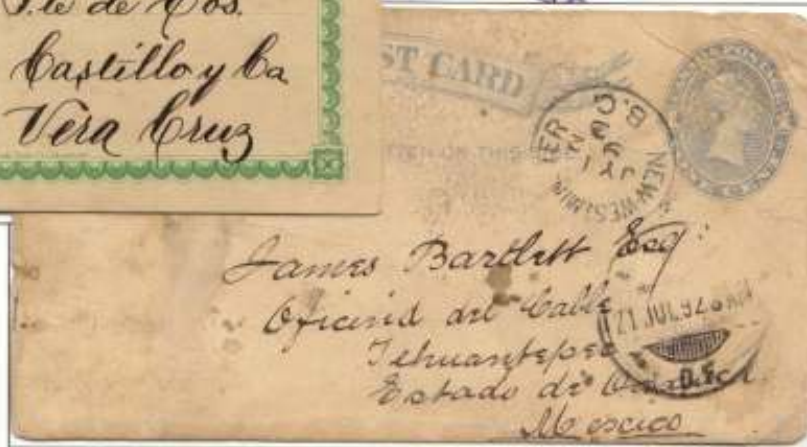 Castillo y Ca
Vera Cruz
ST CARD
TEN ON THIS
NEW WESTMIN ER
B.C
JY 1
92
James Bartlett Esq:
Oficina del Cable
Tehuantepec
Estado de
Mexico
21 JUL 92
D.F.